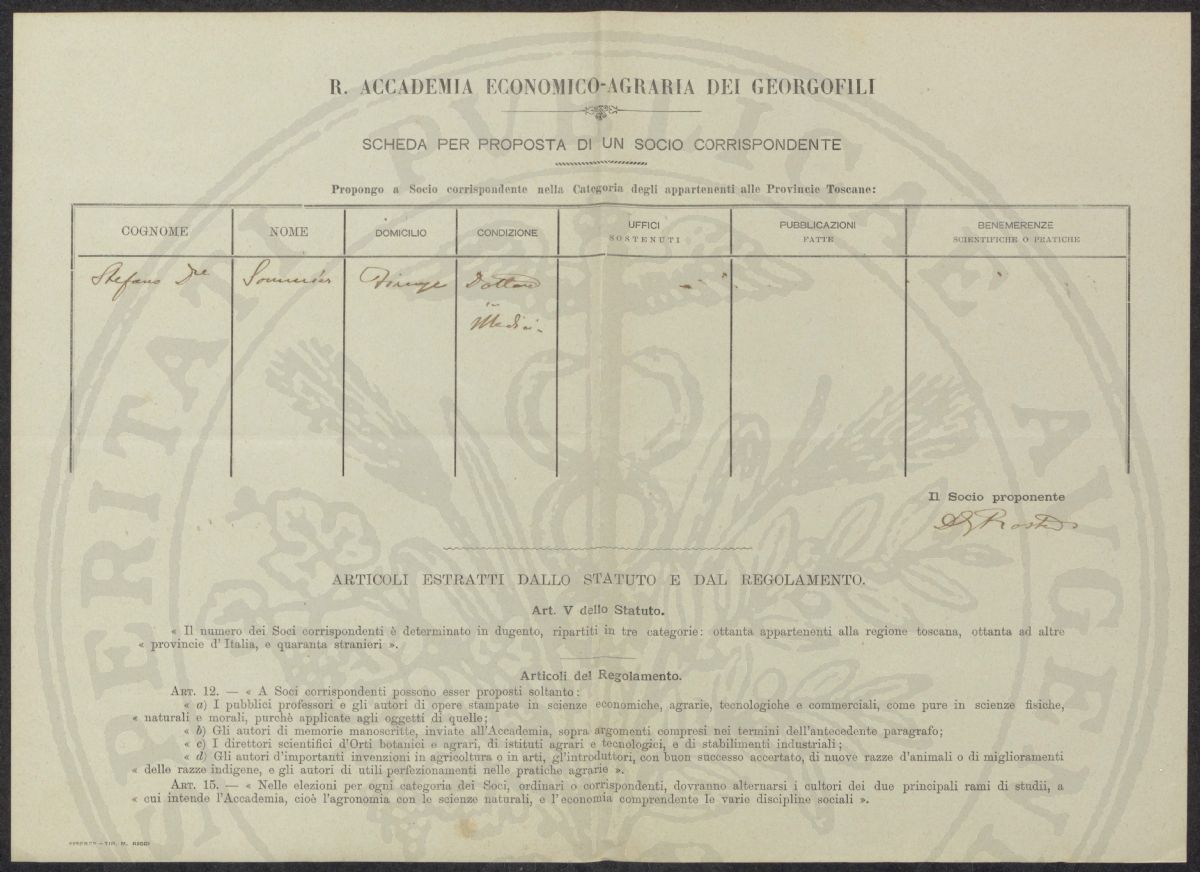 R. ACCADEMIA ECONOMICO-AGRARIA DEI GEORGOFILI
SCHEDA PER PROPOSTA DI UN SOCIO CORRISPONDENTE
Propongo a Socio corrispondente nella Categoria degli appartenenti alle Provincie Toscane:
COGNOME NOME DOMICILIO CONDIZIONE UFFICI SOSTENUTI PUBBLICAZIONI FATTE BENEMERENZE SCIENTIFICHE O PRATICHE
Stefano Dre Sommier Firenze Dottore
in
Medici-
Il Socio proponente
ARTICOLI ESTRATTI DALLO STATUTO E DAL REGOLAMENTO.
Art. V dello Statuto.
« Il numero dei Soci corrispondenti è determinato in dugento, ripartiti in tre categorie: ottanta appartenenti alla regione toscana, ottanta ad altre
« provincie d'Italia, e quaranta stranieri ».
Articoli del Regolamento.
ART. 12. — « A Soci corrispondenti possono esser proposti soltanto:
« a) I pubblici professori e gli autori di opere stampate in scienze economiche, agrarie, tecnologiche e commerciali, come pure in scienze fisiche,
« naturali e morali, purchè applicate agli oggetti di quelle;
« b) Gli autori di memorie manoscritte, inviate all'Accademia, sopra argomenti compresi nei termini dell'antecedente paragrafo;
« c) I direttori scientifici d'Orti botanici e agrari, di istituti agrari e tecnologici, e di stabilimenti industriali;
« d) Gli autori d'importanti invenzioni in agricoltura o in arti, gl'introduttori, con buon successo accertato, di nuove razze d'animali o di miglioramenti
« delle razze indigene, e gli autori di utili perfezionamenti nelle pratiche agrarie ».
ART. 15. — « Nelle elezioni per ogni categoria dei Soci, ordinari o corrispondenti, dovranno alternarsi i cultori dei due principali rami di studii, a
« cui intende l'Accademia, cioè l'agronomia con le scienze naturali, e l'economia comprendente le varie discipline sociali ».
FIRENZE - TIP. M. RICCI